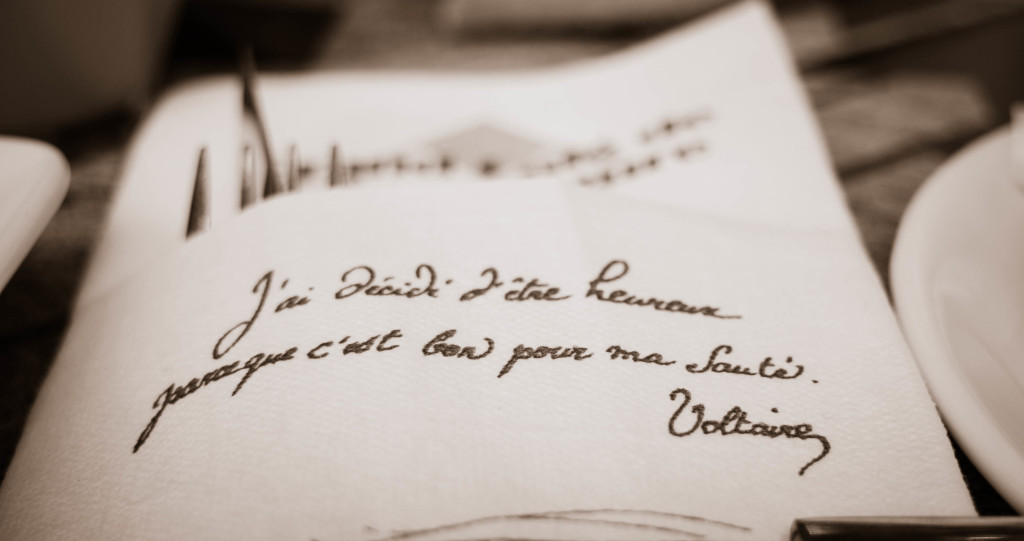 J'ai décidé d'être heureux
parceque c'est bon pour ma santé.
Voltaire